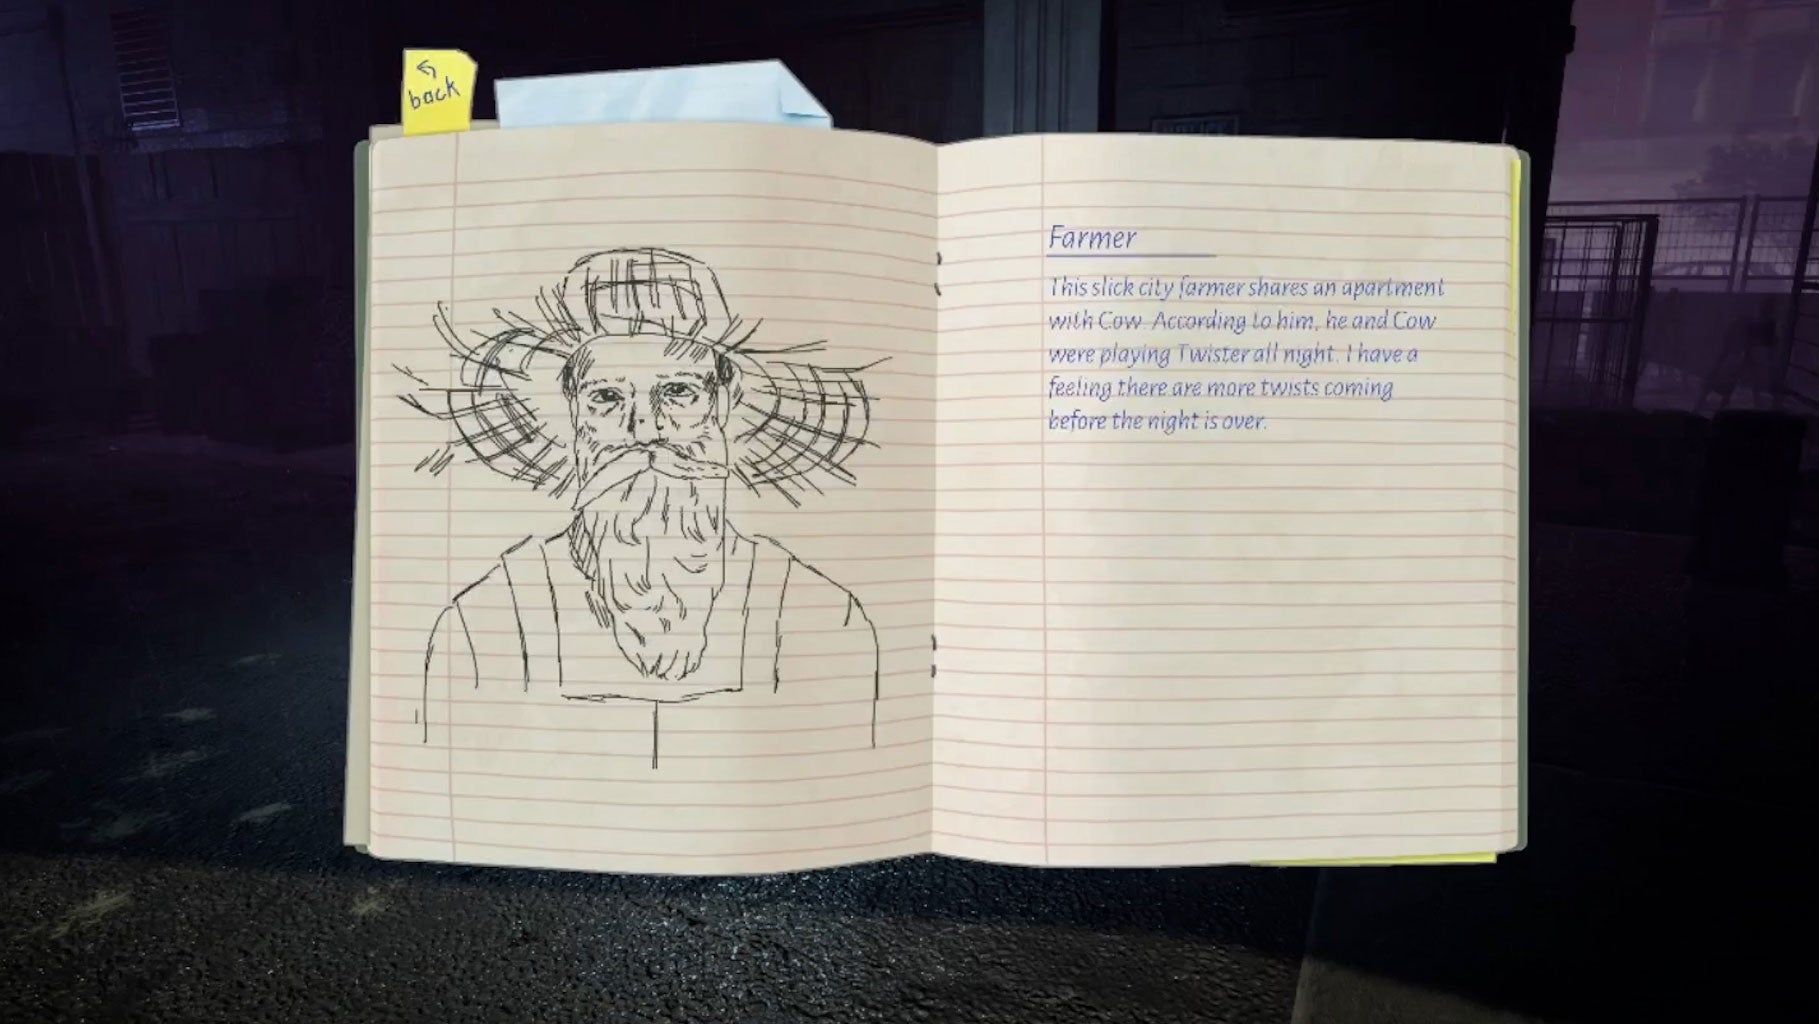 back
Farmer
This slick city farmer shares an apartment
with Cow. According to him, he and Cow
were playing Twister all night. I have a
feeling there are more twists coming
before the night is over.